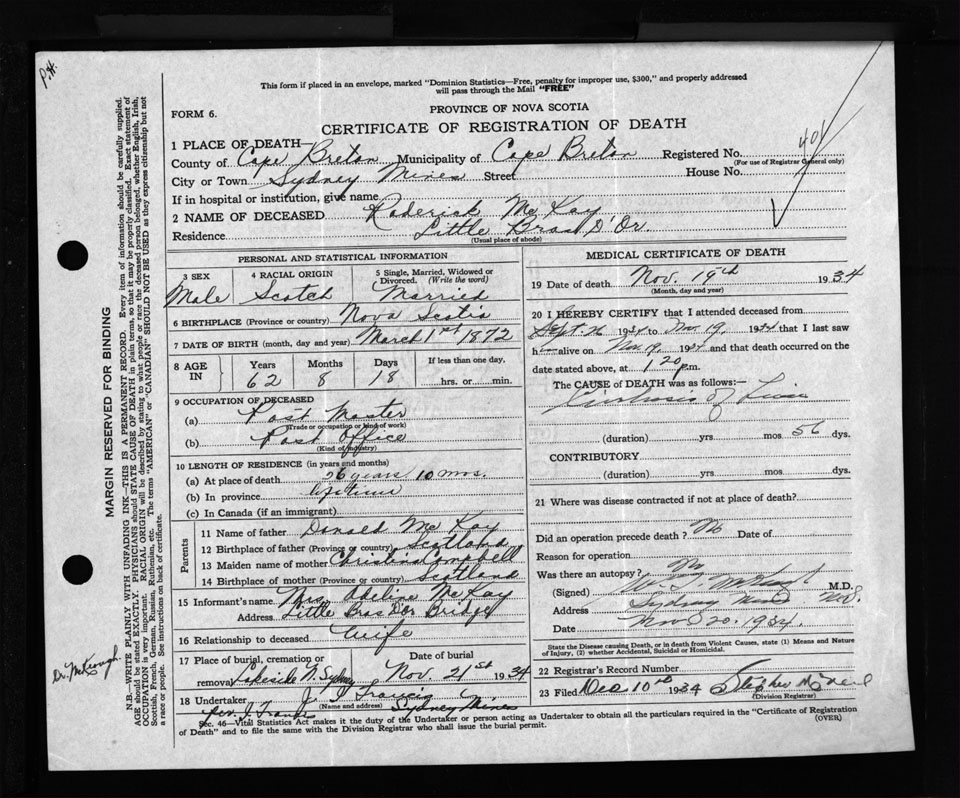 P.H.
This form if placed in an envelope, marked "Dominion Statistics—Free, penalty for improper use, $300," and properly addressed
will pass through the Mail "FREE"
FORM 6.
PROVINCE OF NOVA SCOTIA
CERTIFICATE OF REGISTRATION OF DEATH
1 PLACE OF DEATH—
County of Cape Breton Municipality of Cape Breton Registered No.
(For use of Registrar General only)
City or Town Sydney Mines Street House No.
If in hospital or institution, give name
2 NAME OF DECEASED Roderick McKay
Residence Little Bras D'Or.
(Usual place of abode)
PERSONAL AND STATISTICAL INFORMATION
3 SEX 4 RACIAL ORIGIN 5 Single, Married, Widowed or
Divorced. (Write the word)
Male Scotch Married
6 BIRTHPLACE (Province or country) Nova Scotia
7 DATE OF BIRTH (month, day and year) March 1st 1872
8 AGE IN Years Months Days If less than one day,
62 8 18 hrs. or min.
9 OCCUPATION OF DECEASED
(a) Post Master
(Trade or occupation or kind of work)
(b) Post Office
(Kind of industry)
10 LENGTH OF RESIDENCE (in years and months)
(a) At place of death 26 years 10 mos.
(b) In province lifetime
(c) In Canada (if an immigrant)
Parents
11 Name of father Donald McKay
12 Birthplace of father (Province or country) Scotland
13 Maiden name of mother Christena Campbell
14 Birthplace of mother (Province or country) Scotland
15 Informant's name Mrs. Adeline McKay
Address Little Bras D'Or Bridge
16 Relationship to deceased Wife
17 Place of burial, cremation or Date of burial
removal Lakeside N. Sydney Nov. 21st 1934
18 Undertaker J. J. Francis Sydney Mines
(Name and address)
MEDICAL CERTIFICATE OF DEATH
19 Date of death Nov. 19th 1934
(Month, day and year)
20 I HEREBY CERTIFY that I attended deceased from
Sept. 26 1934 to Nov. 19, 1934 that I last saw
him alive on Nov. 19, 1934 and that death occurred on the
date stated above, at 1 20 p.m.
The CAUSE of DEATH was as follows:—
Cirrhosis of Liver
(duration) yrs mos 56 dys.
CONTRIBUTORY
(duration) yrs. mos. dys.
21 Where was disease contracted if not at place of death?
Did an operation precede death? No Date of
Reason for operation
Was there an autopsy? No
(Signed) M.D.
Address Sydney Mines N.S.
Date Nov 20. 1934.
State the Disease causing Death, or in death from Violent Causes, state (1) Means and Nature
of Injury, (2) whether Accidental, Suicidal or Homicidal.
22 Registrar's Record Number
23 Filed Dec 10th 1934 Stephen
(Division Registrar)
Sec. 46—Vital Statistics Act makes it the duty of the Undertaker or person acting as Undertaker to obtain all the particulars required in the "Certificate of Registration
of Death" and to file the same with the Division Registrar who shall issue the burial permit.
(OVER)
MARGIN RESERVED FOR BINDING
N.B.—WRITE PLAINLY WITH UNFADING INK—THIS IS A PERMANENT RECORD. Every item of information should be carefully supplied.
AGE should be stated EXACTLY. PHYSICIANS should STATE CAUSE OF DEATH in plain terms, so that it may be properly classified. Exact statement of
OCCUPATION is very important. RACIAL ORIGIN will be described by stating to what people or race the deceased person belonged, whether English, Irish,
Scottish, French, German, Russian, Ruthenian, etc. The terms "AMERICAN" or "CANADIAN" SHOULD NOT BE USED as they express citizenship but not
a race or people. See instructions on back of certificate.